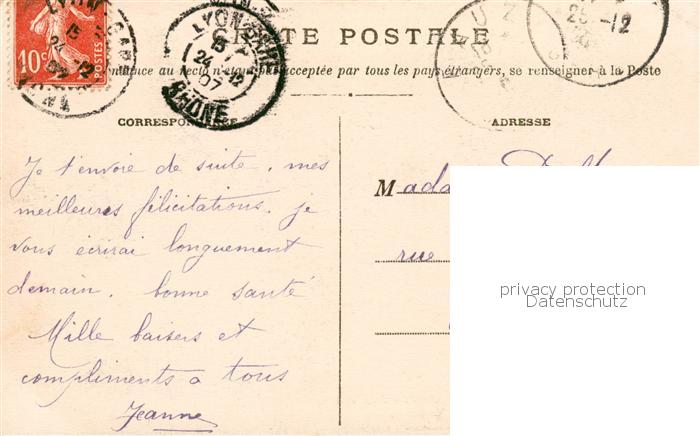 10c
LYON-GARE
15
24 -12
07
RHONE
CARTE POSTALE
La Correspondance au recto n'étant pas acceptée par tous les pays étrangers, se renseigner à la Poste
CORRESPONDANCE
ADRESSE
Je t'envoie de suite, mes
meilleures félicitations. je
vous écrirai longuement
demain. bonne santé
Mille baisers et
compliments a tous
Jeanne
Mada
rue
privacy protection
Datenschutz